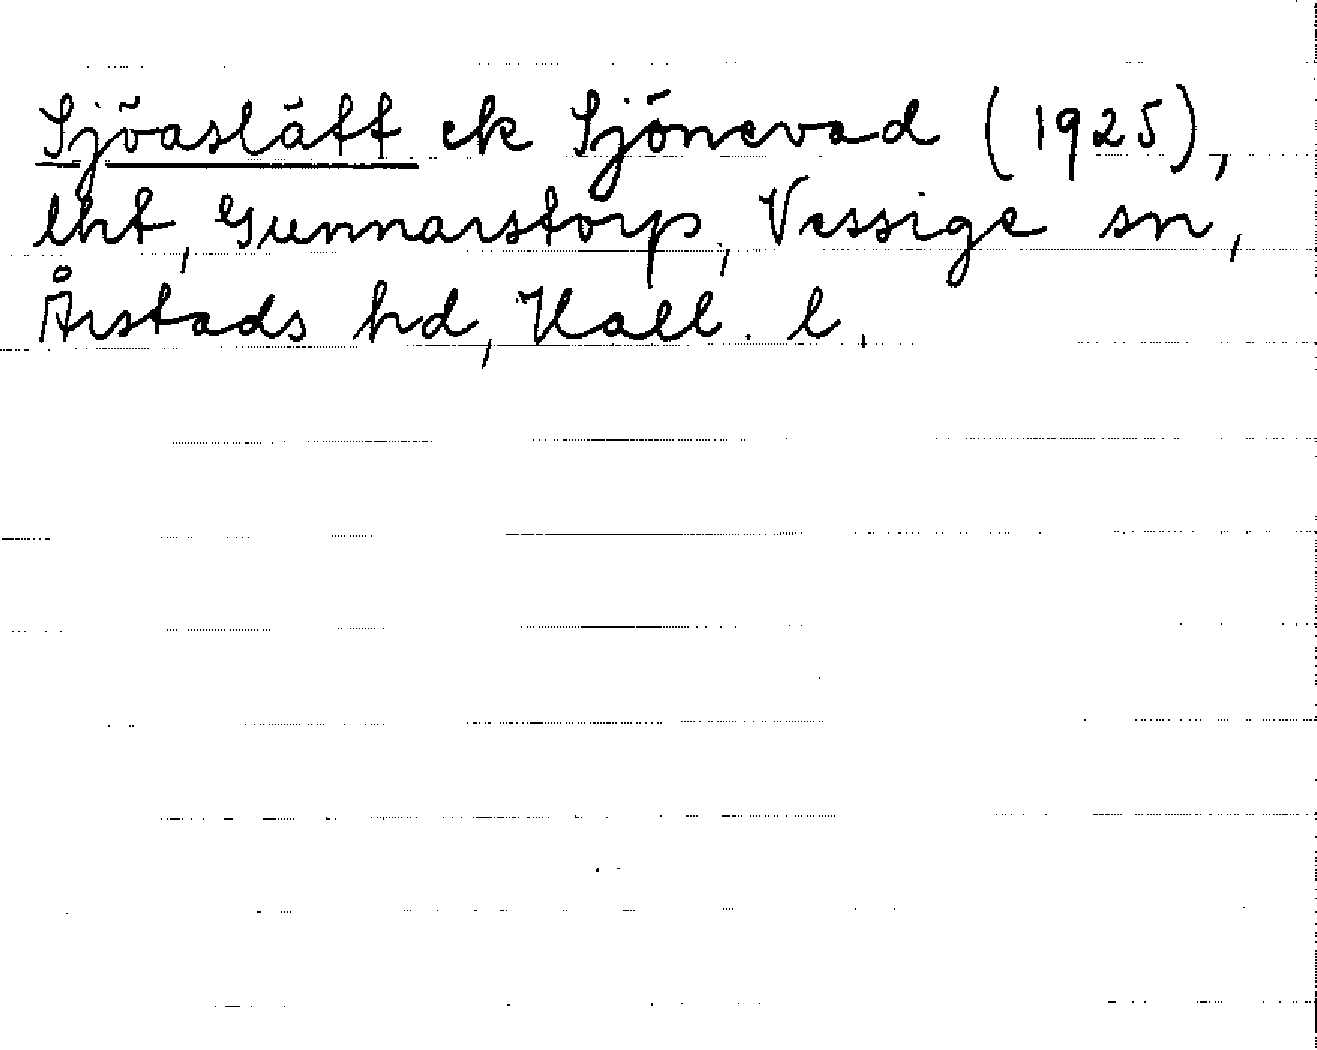 Sjöaslätt ek Sjönevad (1925),
lht, Gunnarstorp, Vessige sn,
Årstads hd, Hall. l.